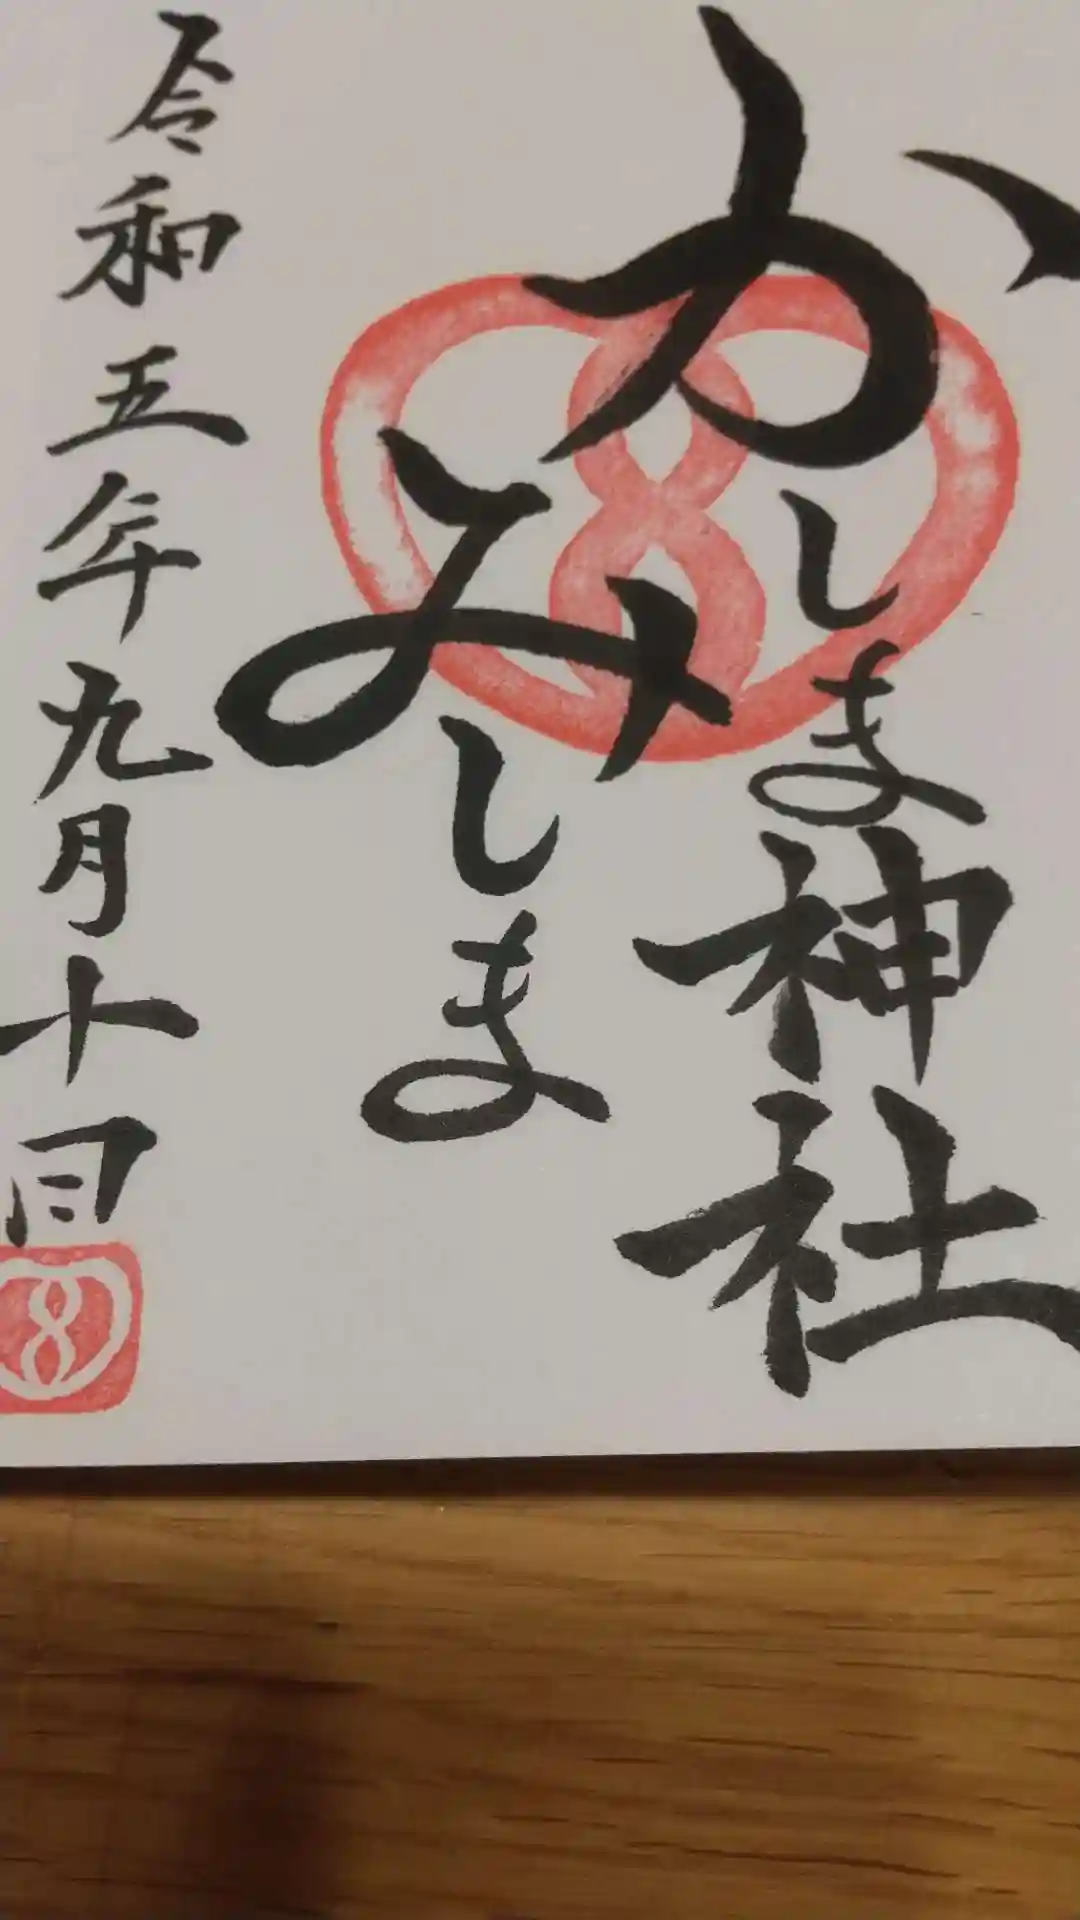 かしま神社
みしま
令和五年九月十日